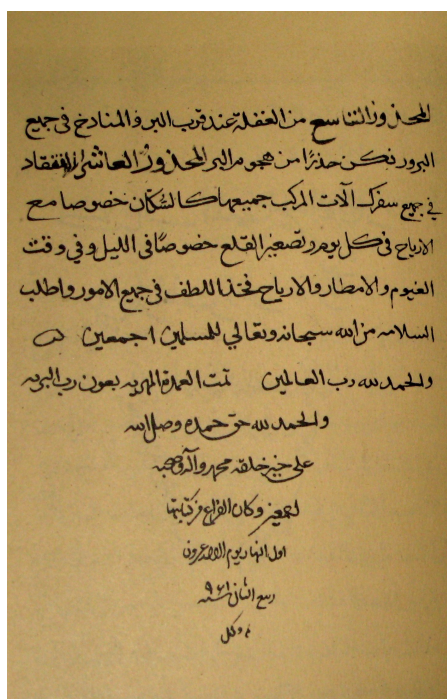 المحذور التاسع من الغفلة عند قرب البر والمنادخ في جميع
البرور فكن حذرًا من هجوم البر المحذور العاشر التفقاد
في جميع سفرك آلات المركب جميعها كالسُّكّان خصوصا مع
الارياح في كل يوم وتصغير القلع خصوصًا في الليل وفي وقت
الغيوم والامطار والارياح فخذ اللطف في جميع الامور واطلب
السلامه من الله سبحانه وتعالي للمسلمين اجمعين
والحمد لله رب العالمين تمت العمدة المهريه بعون رب البريه
والحمد لله حق حمده وصل الله
على خير خلقه محمد وآله وصحبه
اجمعين وكان الفراغ من كتابتها
اول النهار يوم الاحد
ربيع الثان سنه ٩٦١